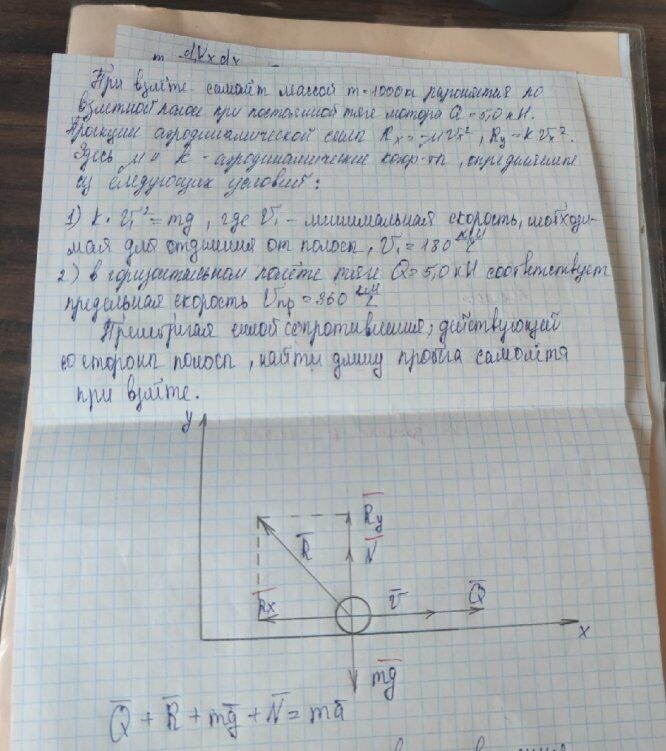 m dVx dx
При взлёте самолёт массой m = 1000 кг разгоняется по
взлётной полосе при постоянной тяге мотора Q = 5,0 кН.
Проекции аэродинамической силы Rx = -μVx², Ry = kVx².
Здесь μ и k - аэродинамические коэф-ты, определяемые
из следующих условий:
1) k·V₁² = mg, где V₁ - минимальная скорость, необходи-
мая для отделения от полосы, V₁ = 180 км/ч
2) в горизонтальном полёте тяге Q = 5,0 кН соответствует
предельная скорость Vпр = 360 км/ч
Пренебрегая силой сопротивления, действующей
со стороны полосы, найти длину пробега самолёта
при взлёте.
y
R̄y
R̄
N̄
R̄x
v̄
Q̄
x
mḡ
Q̄ + R̄ + mḡ + N̄ = mā